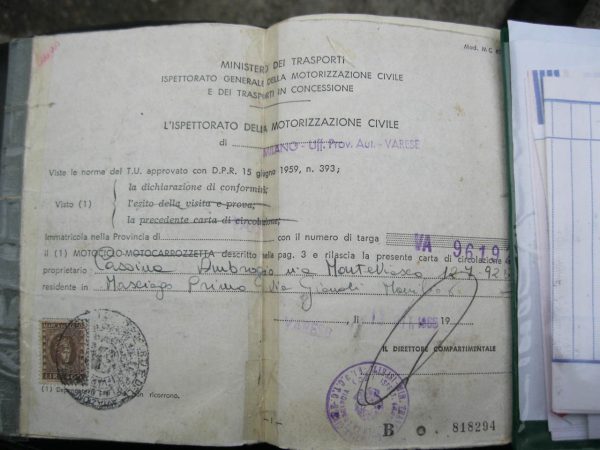 Mod. M C
MINISTERO DEI TRASPORTI
ISPETTORATO GENERALE DELLA MOTORIZZAZIONE CIVILE
E DEI TRASPORTI IN CONCESSIONE
L'ISPETTORATO DELLA MOTORIZZAZIONE CIVILE
di MILANO - Uff. Prov. Aut. - VARESE
Viste le norme del T.U. approvato con D.P.R. 15 giugno 1959, n. 393;
la dichiarazione di conformità;
Visto (1) l'esito della visita e prova;
la precedente carta di circolazione;
Immatricola nella Provincia di con il numero di targa VA 9619
il (1) MOTOCICLO-MOTOCARROZZETTA descritto nella pag. 3 e rilascia la presente carta di circolazione
proprietario Cassina Ambrogio via
residente in Masciago Primo Via
VARESE, li 1965 19
IL DIRETTORE COMPARTIMENTALE
(1) che non ricorrono.
- 1 -
B 818294